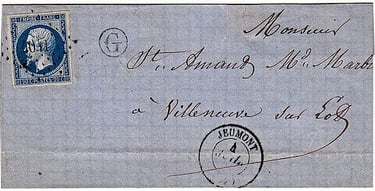 EMPIRE FRANC.
20 C. POSTES 20 C.
G
Monsieur
St. Amand Md. Marb
à Villeneuve sur Lot
JEUMONT
4